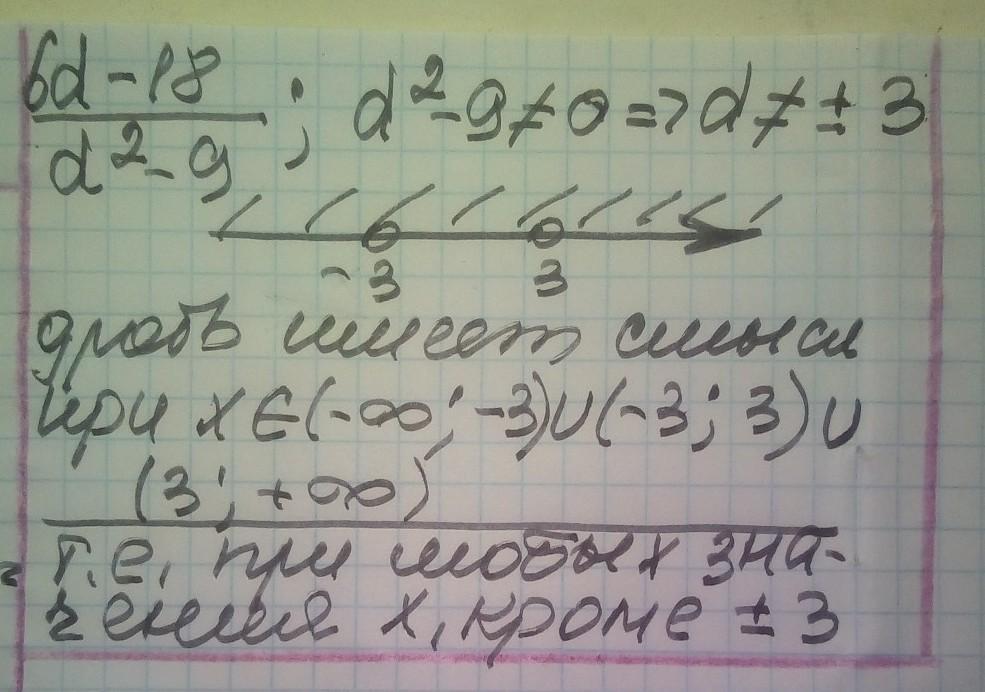 (6d-18)/(d²-9); d²-9≠0=>d≠±3
-3 3
дробь имеет смысл
при x∈(-∞;-3)∪(-3;3)∪
(3;+∞)
т.е. при любых зна-
чения x, кроме ±3